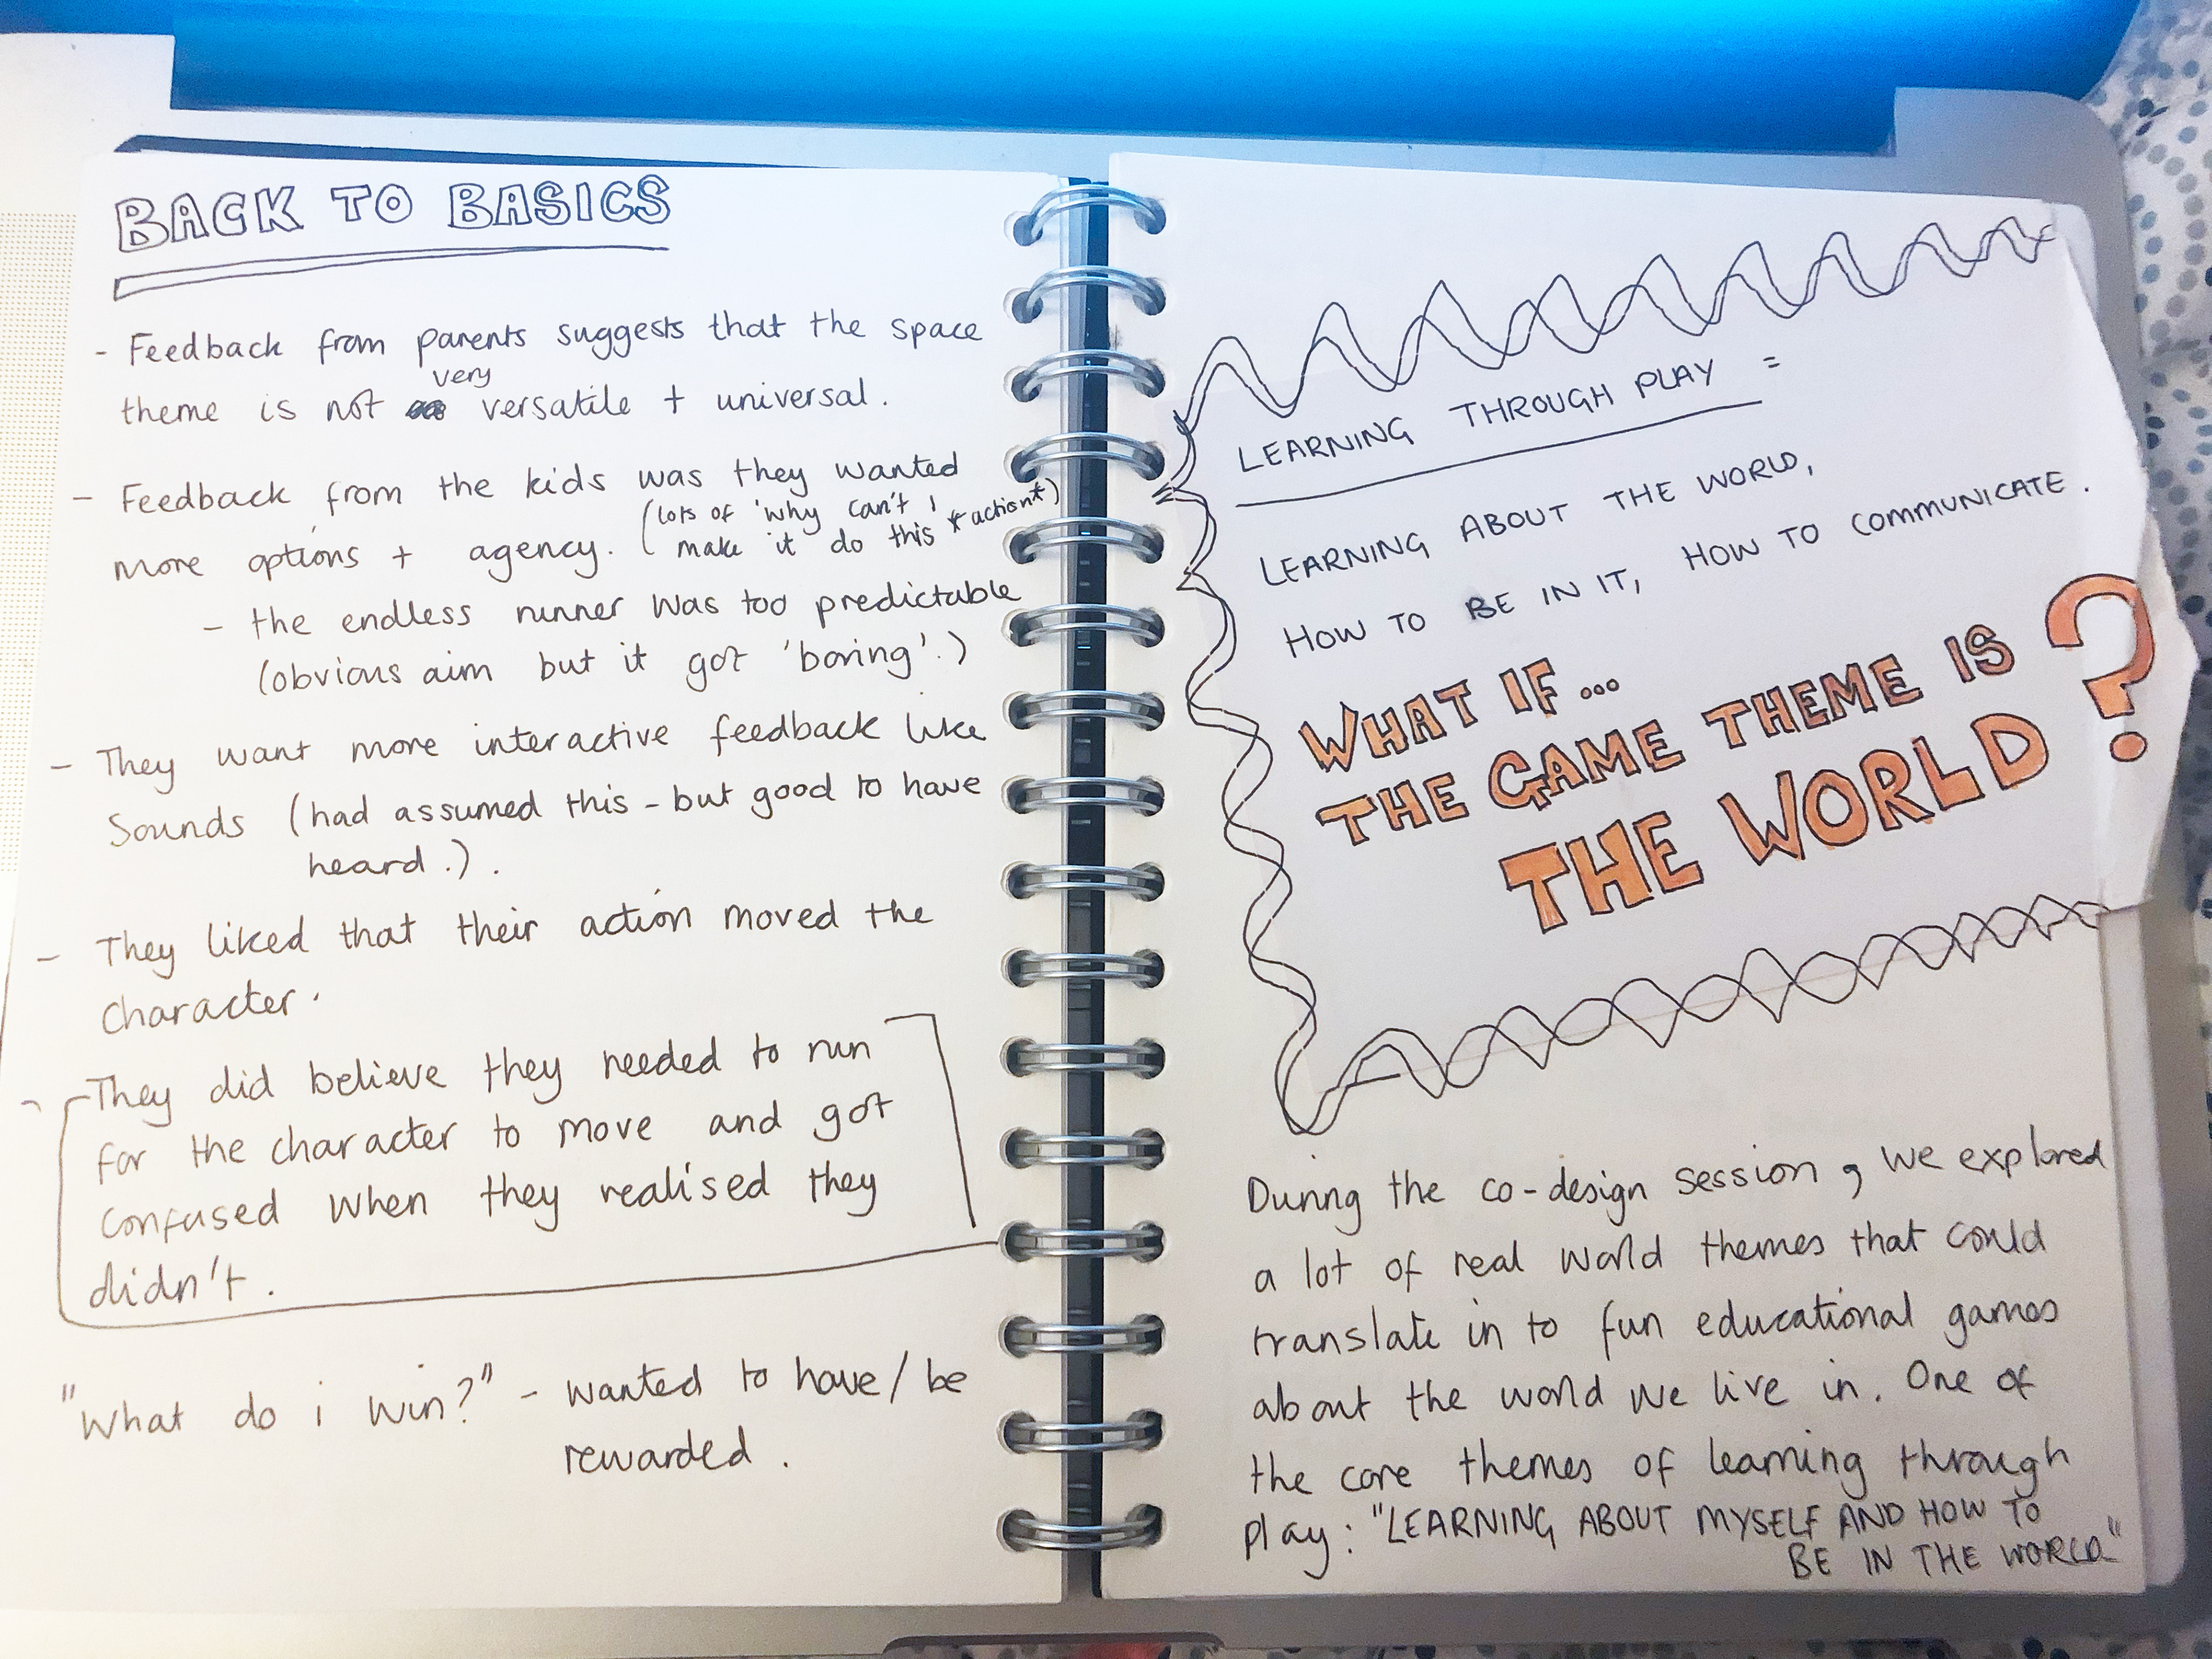 BACK TO BASICS
- Feedback from parents suggests that the space
very
theme is not versatile + universal.
- Feedback from the kids was they wanted
more options + agency. (lots of 'why can't I
make it do this *action*)
- the endless runner was too predictable
(obvious aim but it got 'boring'.)
- They want more interactive feedback like
Sounds (had assumed this - but good to have
heard.).
- They liked that their action moved the
character.
- They did believe they needed to run
for the character to move and got
confused when they realised they
didn't.
"What do i win?" - wanted to have/be
rewarded.
LEARNING THROUGH PLAY =
LEARNING ABOUT THE WORLD,
HOW TO BE IN IT, HOW TO COMMUNICATE.
WHAT IF...
THE GAME THEME IS
THE WORLD?
During the co-design session, we explored
a lot of real world themes that could
translate in to fun educational games
about the world we live in. One of
the core themes of learning through
play: "LEARNING ABOUT MYSELF AND HOW TO
BE IN THE WORLD"